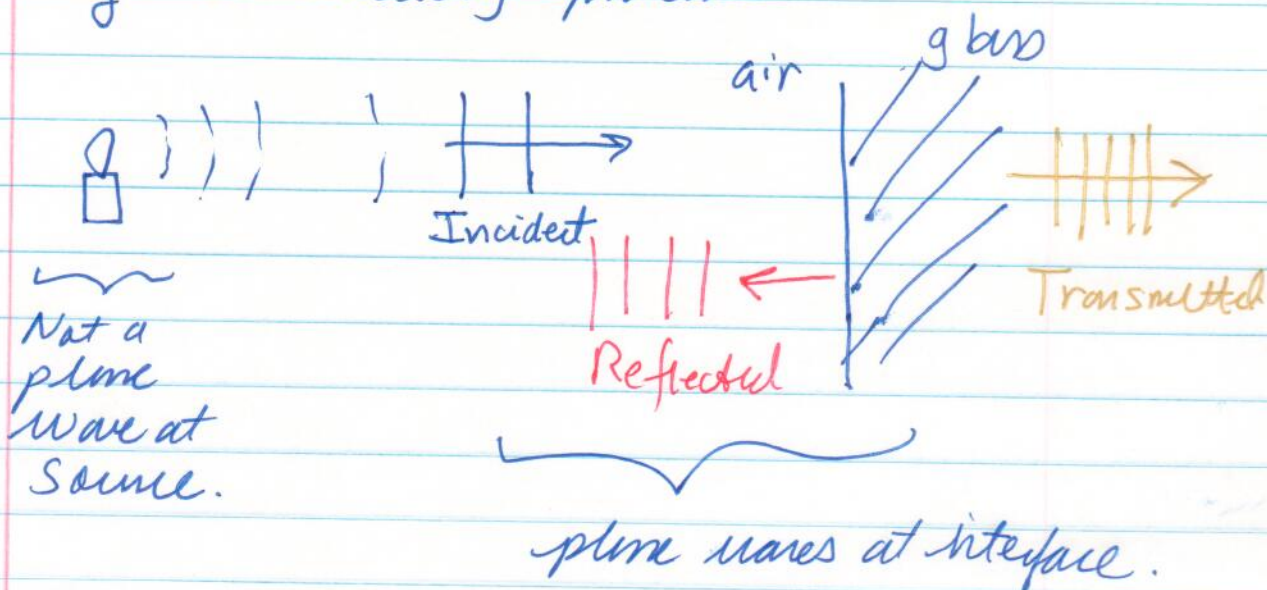 glass
air
Incident
Transmitted
Reflected
Not a
plane
wave at
Source.
plane waves at interface.